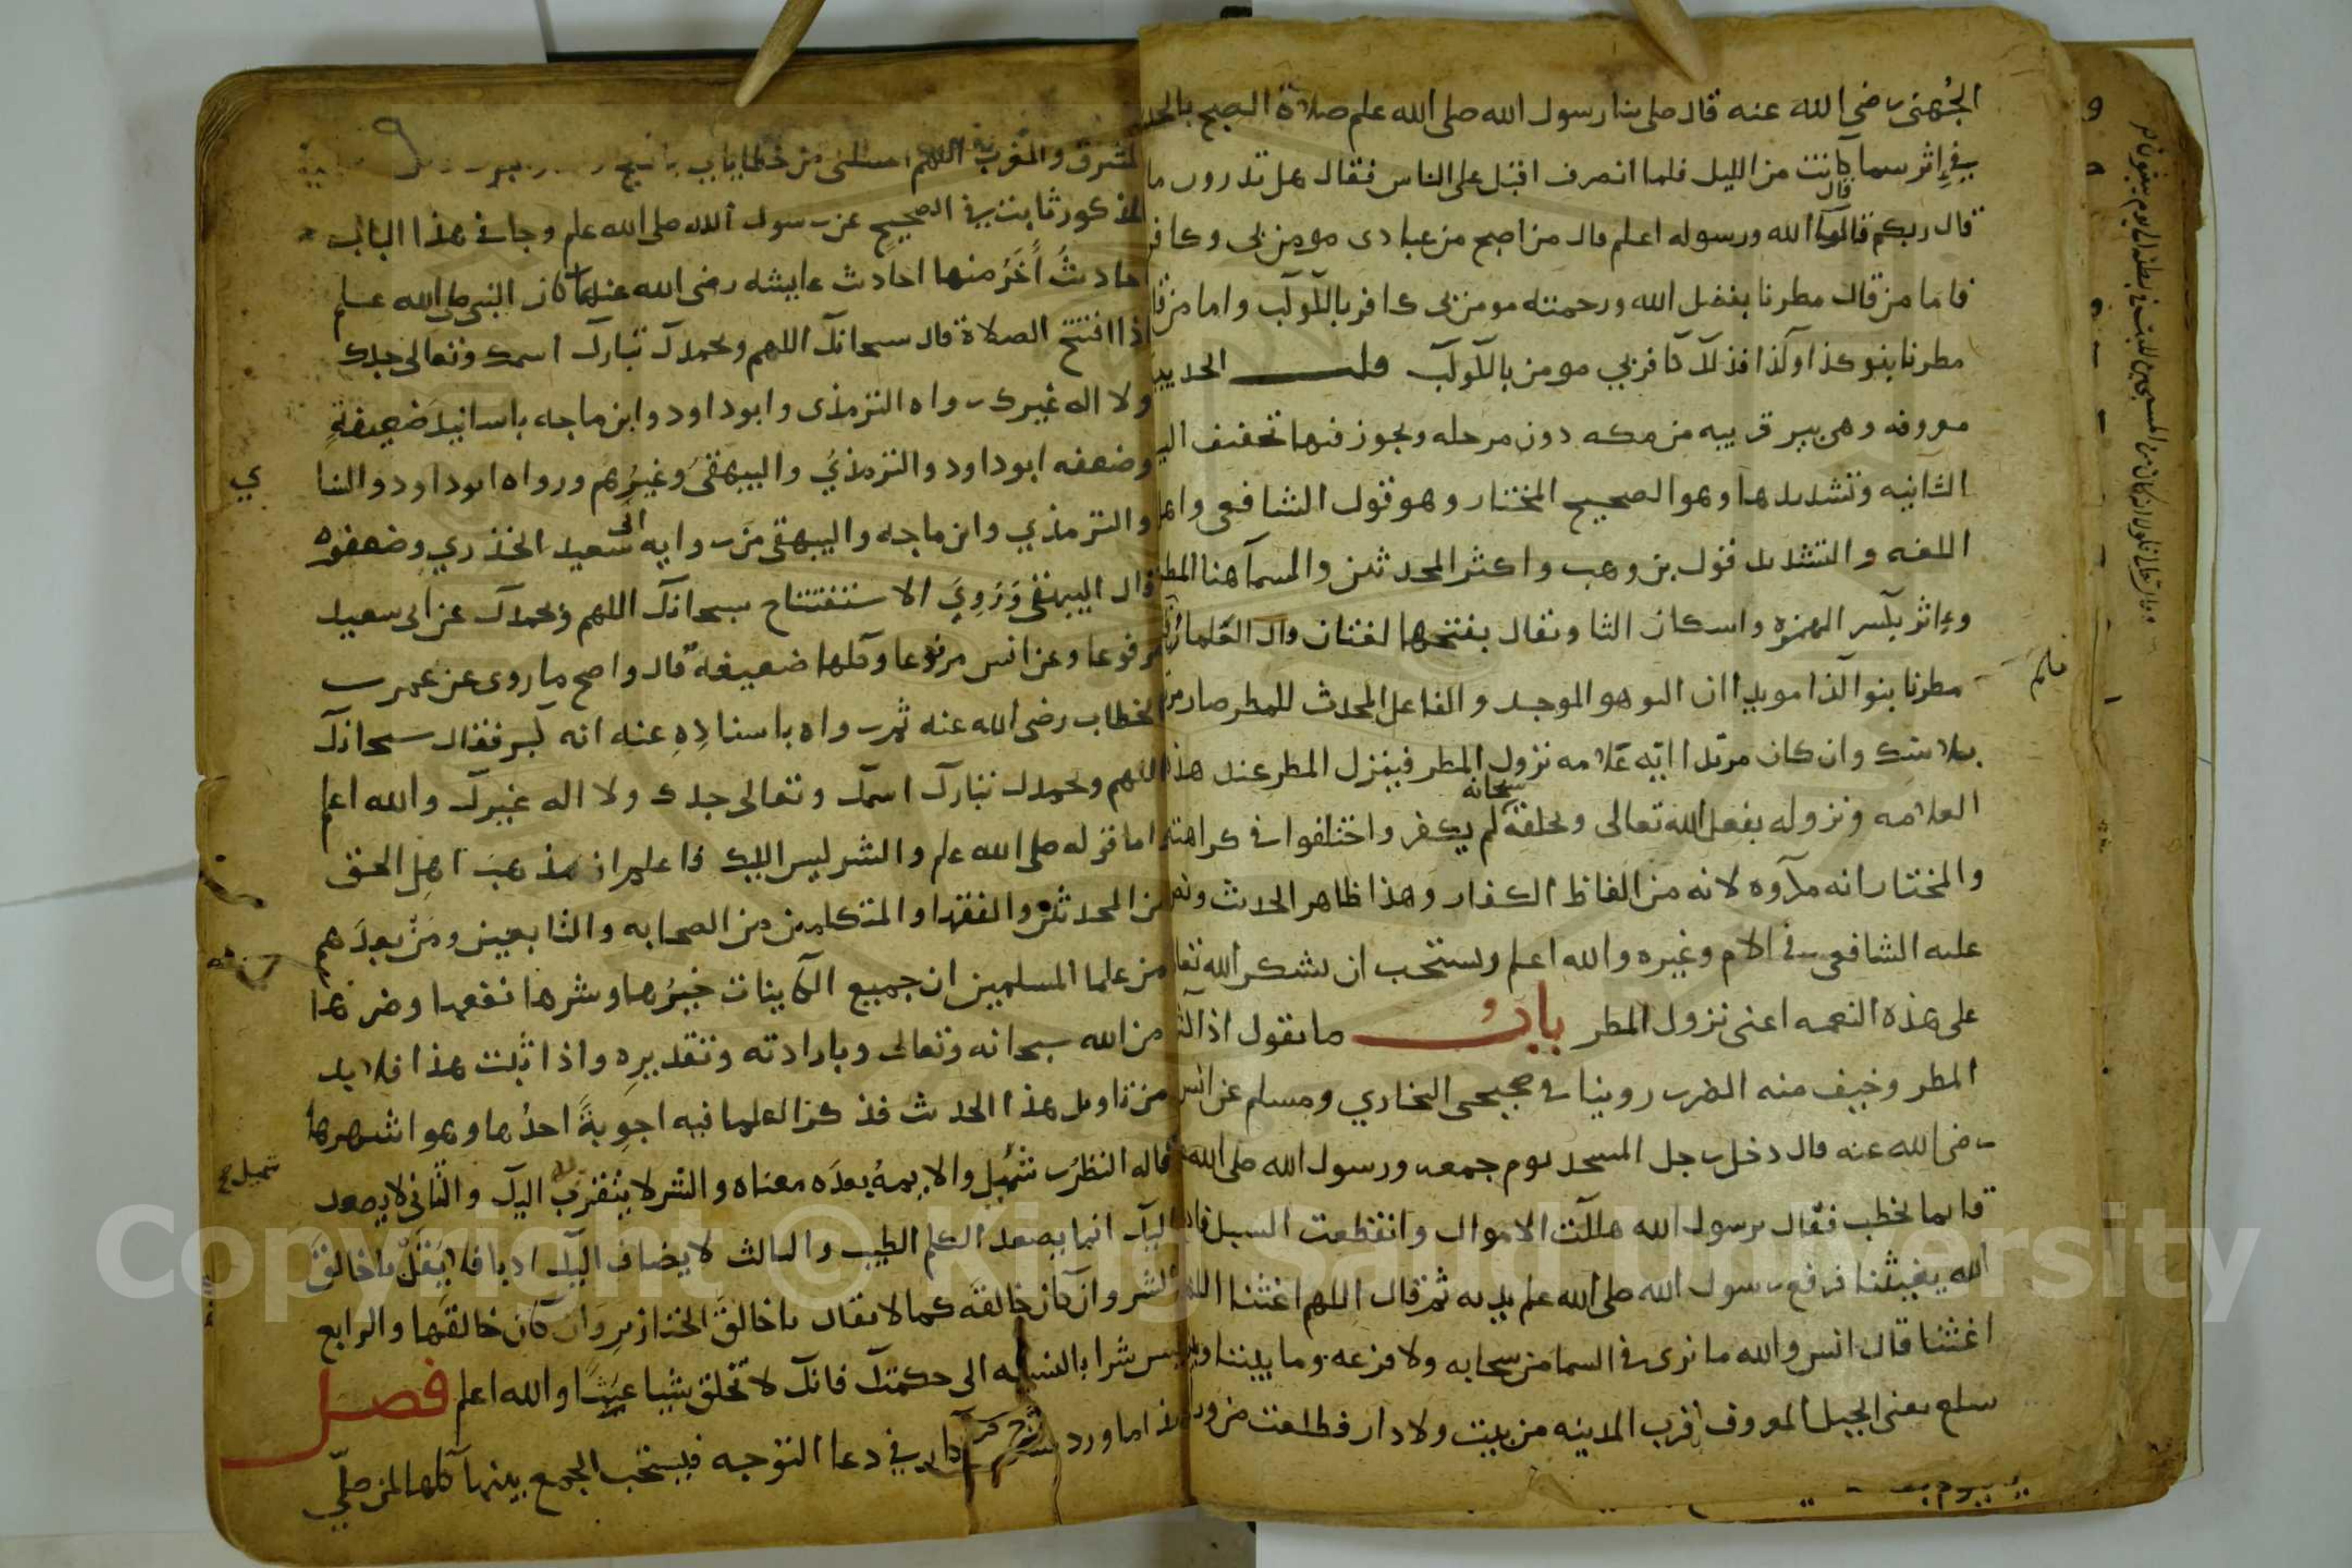 الجُهني رضي الله عنه قال صلى بنا رسول الله صلى الله علم صلاة الصبح بالحد
في إثر سما كانت من الليل فلما انصرف اقبل على الناس فقال هل تدرون ما
قال
قال ربكم قالوا الله ورسوله اعلم قال من اصبح من عبادى مومن بى وكافر
فاما من قال مطرنا بفضل الله ورحمته مومن بى كافر بالكوكب واما من قا
مطرنا بنو كذا وكذا فذلك كافر بي مومن بالكوكب قلت الحديبي
معروفه وهى بير قريبه من مكه دون مرحله ويجوز فيها تخفيف اليا
الثانيه وتشديدها وهو الصحيح المختار وهو قول الشافعى واهل
اللغه والتشديد قول بن وهب واكثر المحدثين والسمآ هنا المطر
وإثر بكسر الهمزه واسكان الثا ويقال بفتحها لغتان قال العلما ان
مطرنا بنو كذا مريدا ان النو هو الموجد والفاعل المحدث للمطر صار مر
بلا شك وان كان مريدا انه علامه نزول المطر فينزل المطر عند هذ
سبحانه
العلامه ونزوله بفعل الله تعالى وخلقه لم يكفر واختلفوا في كراهته
والمختار انه مكروه لانه من الفاظ الكفار وهذا ظاهر الحدث ونص
عليه الشافعى في الام وغيره والله اعلم ويستحب ان يشكر الله تعا
على هذه النعمه اعنى نزول المطر بابُ ما يقول اذا كثر
المطر وخيف منه الضرر روينا في صحيحى البخاري ومسلم عن انس
رضى الله عنه قال دخل رجل المسجد يوم جمعه ورسول الله صلى الله
قايما يخطب فقال يرسول الله هلكت الاموال وانقطعت السبل فاد
الله يغيثنا فرفع رسول الله صلى الله علم يديه ثم قال اللهم اغثنا الله
اغثنا قال انس والله ما نرى في السما من سحابه ولا قزعه وما بيننا وبين
سلع يعنى الجبل المعروف بقرب المدينه من بيت ولا دار فطلعت من ور
المشرق والمغرب اللهم اغسلنى من خطاياى
المذكور ثابت في الصحيح عن رسول الله صلى الله علم وجا في هذا الباب
احاديثُ أُخَرُ منها احادث عايشه رضى الله عنها كان النبي صلى الله علم
اذا افتتح الصلاة قال سبحانك اللهم وبحمدك تبارك اسمك وتعالى جدك
ولا اله غيرك رواه الترمذى وابو داود وابن ماجه باسانيدَ ضعيفةٍ
وضعفه ابو داود والترمذيُ والبيهقىُ وغيرُهم ورواه ابو داود والنسا
ي
والترمذي وابن ماجه والبيهقى من روايه ابى سعيد الخذري وضعفوه
قال البيهقى وَرُوِيَ الاستفتتاح بسبحانك اللهم وبحمدك عن ابى سعيد
مرفوعا وعن انس مرفوعا وكلها ضعيفة قال واصح ما روى عن عمر بن
الخطاب رضى الله عنه ثم رواه باسنادِهِ عنه انه كبر فقال سبحانك
اللهم وبحمدك تبارك اسمك وتعالى جدك ولا اله غيرك والله اعلم
اما قوله صلى الله علم والشر ليس اليك فاعلم ان مذهب اهل الحق
من المحدثين والفقها والمتكلمين من الصحابه والتابعين ومَنْ بعدَهم
من علما المسلمين ان جميع الكاينات خيرُها وشرها نفعها وضرها
من الله سبحانه وتعالى وبارادته وتقديرِه واذا ثبت هذا فلا بد
من تاويل هذا الحدث فذكر العلما فيه اجوبةً احدُها وهو اشهرها
قاله النضرُ بن شُمَيْل والايمهُ بعدَه معناه والشر لا يتقرب به اليك والثانى لا يصعد
شميل
اليك انما يصعد الكلم الطيب والثالث لا يضاف اليك ادبا فلا يقل يا خالقَ
الشر وان كان خالقَه كما لا يقال يا خالقَ الخنازير وان كان خالقَها والرابع
ليس شرا بالنسبه الى حكمتك فانك لا تخلق شيا عبثًا والله اعلم فصل
هذا ما ورد من الاذكار في دعا التوجه فيستحب الجمع بينها كلها لمن صلّى
Copyright © King Saud University